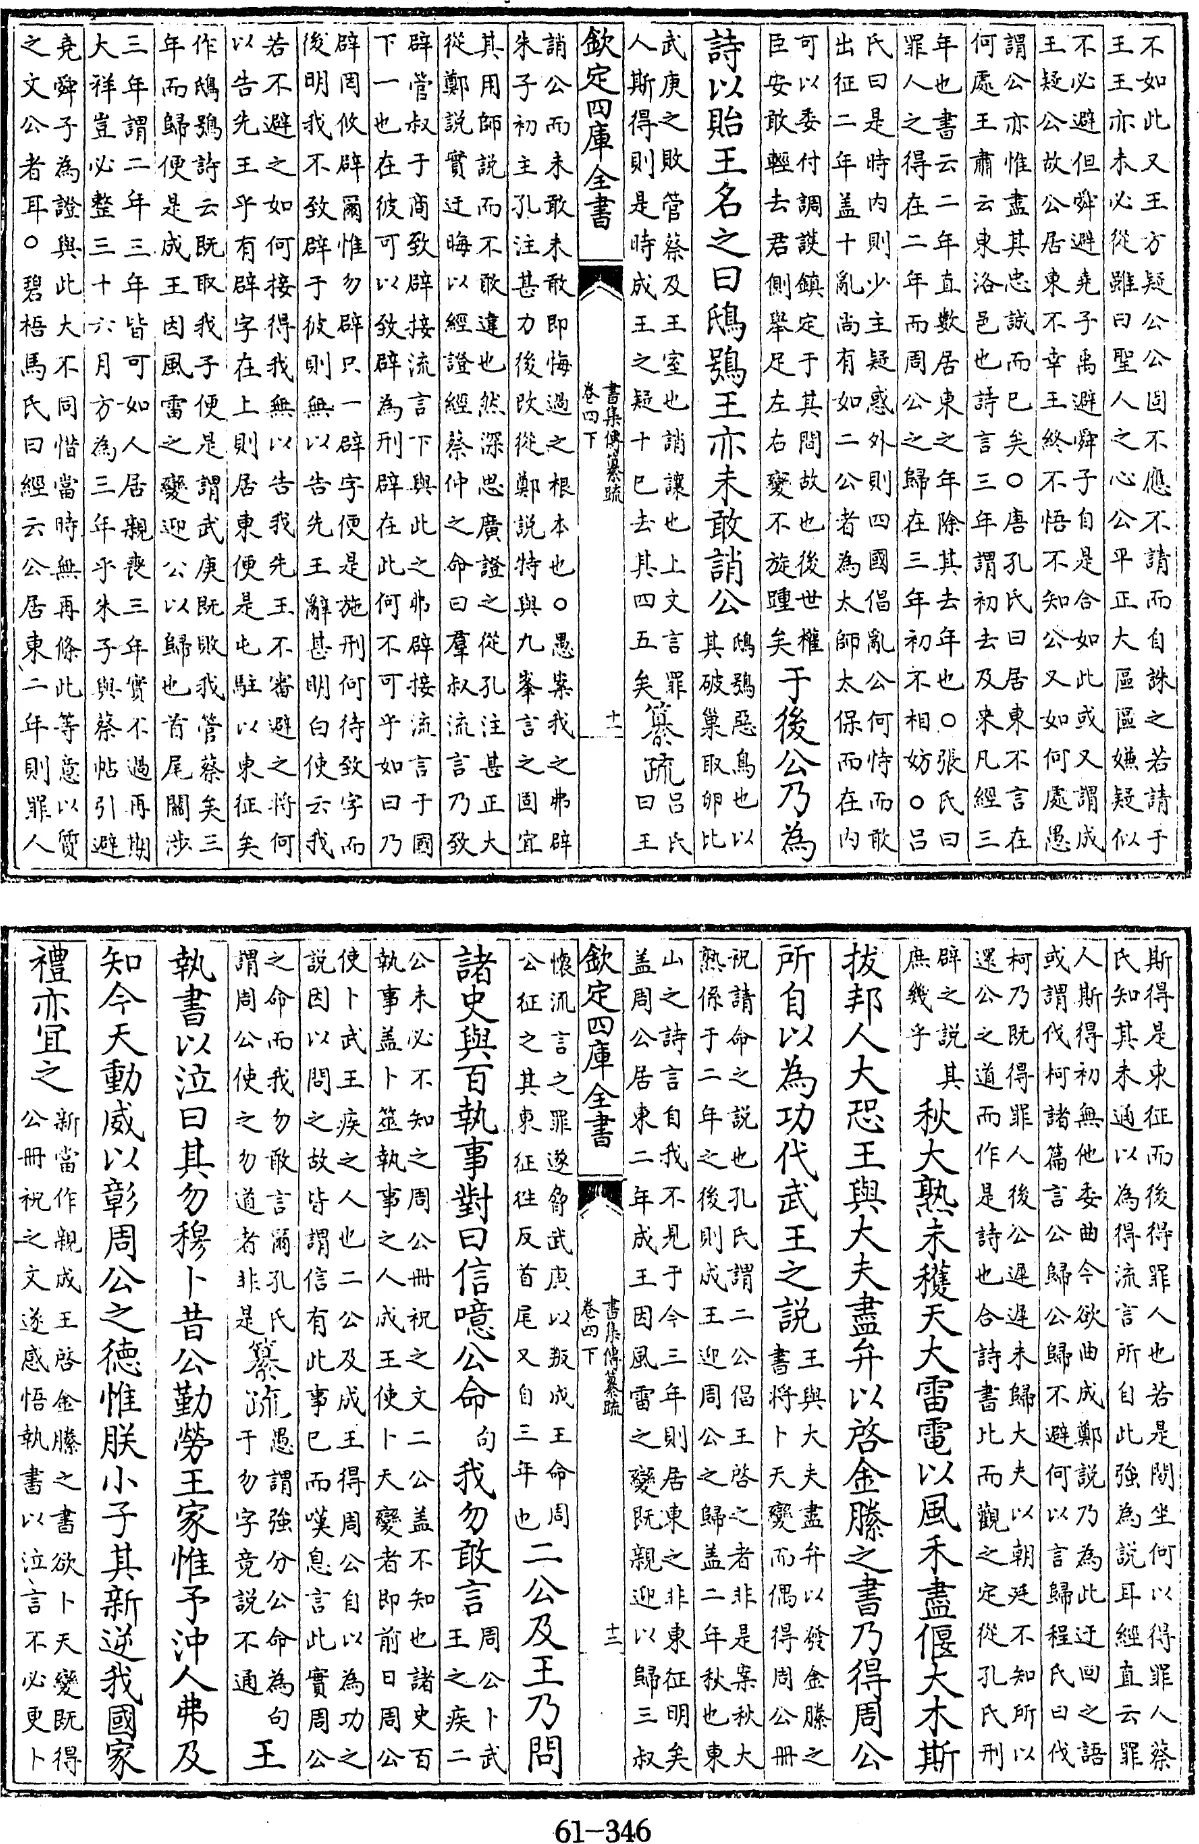 不如此又王方疑公公固不應不請而自誅之若請于
王王亦未必從雖曰聖人之心公平正大區區嫌疑似
不必避但舜避堯子禹避舜子自是合如此或又謂成
王疑公故公居東不幸王終不悟不知公又如何處愚
謂公亦惟盡其忠誠而已矣○唐孔氏曰居東不言在
何處王肅云東洛邑也詩言三年謂初去及來凡經三
年也書云二年直數居東之年除其去年也○張氏曰
罪人之得在二年而周公之歸在三年初不相妨○呂
氏曰是時内則少主疑惑外則四國倡亂公何恃而敢
出征二年盖十亂尚有如二公者為太師太保而在内
可以委付調䕶鎮定于其間故也後世權
臣安敢輕去君側舉足左右變不旋踵矣
于後公乃為
詩以貽王名之曰鴟鴞王亦未敢誚公
鴟鴞惡鳥也以
其破巢取卵比
武庚之敗管蔡及王室也誚讓也上文言罪
人斯得則是時成王之疑十已去其四五矣
纂疏
呂氏
曰王
欽定四庫全書
書集傳纂疏
卷四下
十二
誚公而未敢未敢即悔過之根本也○愚案我之弗辟
朱子初主孔注甚力後改從鄭說特與九峯言之固宜
其用師說而不敢違也然深思廣證之從孔注甚正大
從鄭說實迂晦以經證經蔡仲之命曰羣叔流言乃致
辟管叔于商致辟接流言下與此之弗辟接流言于國
下一也在彼可以致辟為刑辟在此何不可乎如曰乃
辟罔攸辟爾惟勿辟只一辟字便是施刑何待致字而
後明我不致辟于彼則無以告先王辭甚明白使云我
若不避之如何接得我無以告我先王不審避之將何
以告先王乎有辟字在上則居東便是屯駐以東征矣
作鴟鴞詩云既取我子便是謂武庚既敗我管蔡矣三
年而歸便是成王因風雷之變迎公以歸也首尾關涉
三年謂二年三年皆可如人居親喪三年實不過再期
大祥豈必整三十六月方為三年乎朱子與蔡帖引避
堯舜子為證與此大不同惜當時無再條此等意以質
之文公者耳○碧梧馬氏曰經云公居東二年則罪人
斯得是東征而後得罪人也若是閒坐何以得罪人蔡
氏知其未通以為得流言所自此強為說耳經直云罪
人斯得初無他委曲今欲曲成鄭說乃為此迂回之語
或謂伐柯諸篇言公歸公歸不避何以言歸程氏曰伐
柯乃既得罪人後公遲遲未歸大夫以朝廷不知所以
還公之道而作是詩也合詩書此而觀之定從孔氏刑
辟之說其
庶幾乎
秋大熟未穫天大雷電以風禾盡偃大木斯
拔邦人大恐王與大夫盡弁以啓金縢之書乃得周公
所自以為功代武王之說
王與大夫盡弁以發金縢之
書將卜天變而偶得周公冊
祝請命之說也孔氏謂二公倡王啓之者非是案秋大
熟係于二年之後則成王迎周公之歸盖二年秋也東
山之詩言自我不見于今三年則居東之非東征明矣
盖周公居東二年成王因風雷之變既親迎以歸三叔
欽定四庫全書
書集傳纂疏
卷四下
十三
懷流言之罪遂脅武庚以叛成王命周
公征之其東征徃反首尾又自三年也
二公及王乃問
諸史與百執事對曰信噫公命
句
我勿敢言
周公卜武
王之疾二
公未必不知之周公冊祝之文二公盖不知也諸史百
執事盖卜筮執事之人成王使卜天變者即前日周公
使卜武王疾之人也二公及成王得周公自以為功之
說因以問之故皆謂信有此事已而嘆息言此實周公
之命而我勿敢言爾孔氏
謂周公使之勿道者非是
纂疏
愚謂強分公命為句
于勿字竟說不通
王
執書以泣曰其勿穆卜昔公勤勞王家惟予沖人弗及
知今天動威以彰周公之德惟朕小子其新逆我國家
禮亦宜之
新當作親成王啓金縢之書欲卜天變既得
公冊祝之文遂感悟執書以泣言不必更卜
61-346